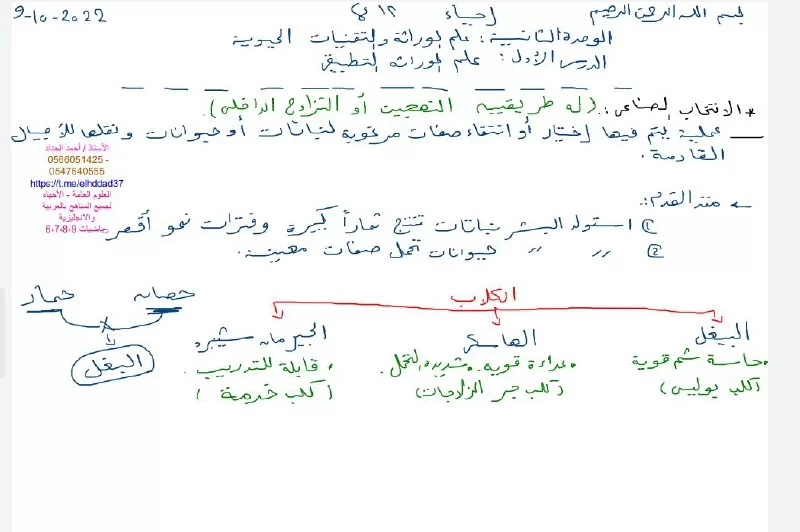 بسم الله الرحمن الرحيم إحياء ١٢ ع 9-10-2022
الوحدة الثانية: علم الوراثة والتقنيات الحيوية
الدرس الأول: علم الوراثة التطبيقي
* الانتخاب الصناعي: (له طريقتين التهجين أو التزاوج الداخلي)
عملية يتم فيها إختيار أو انتقاء صفات مرغوبة لنباتات أو حيوانات ونقلها للأجيال
القادمة.
الأستاذ / أحمد الحداد
0566051425 -
0547640555
https://t.me/elhddad37
العلوم العامة - الأحياء
لجميع المناهج بالعربية
والانجليزية
رياضيات 6،7،8،9
منذ القدم:
1) استولد البشر نباتات تنتج ثماراً كبيرة وفترات نمو أقصر
2) " " حيوانات تحمل صفات معينة.
الكلاب
البيغل
حاسة شم قوية
(كلب بوليس)
الهاسكي
عداءة قوية. شديدة التحمل.
(كلب جر الزلاجات)
الجيرمان شيبرد
قابلة للتدريب.
(كلب خدمة)
حصان حمار
البغل